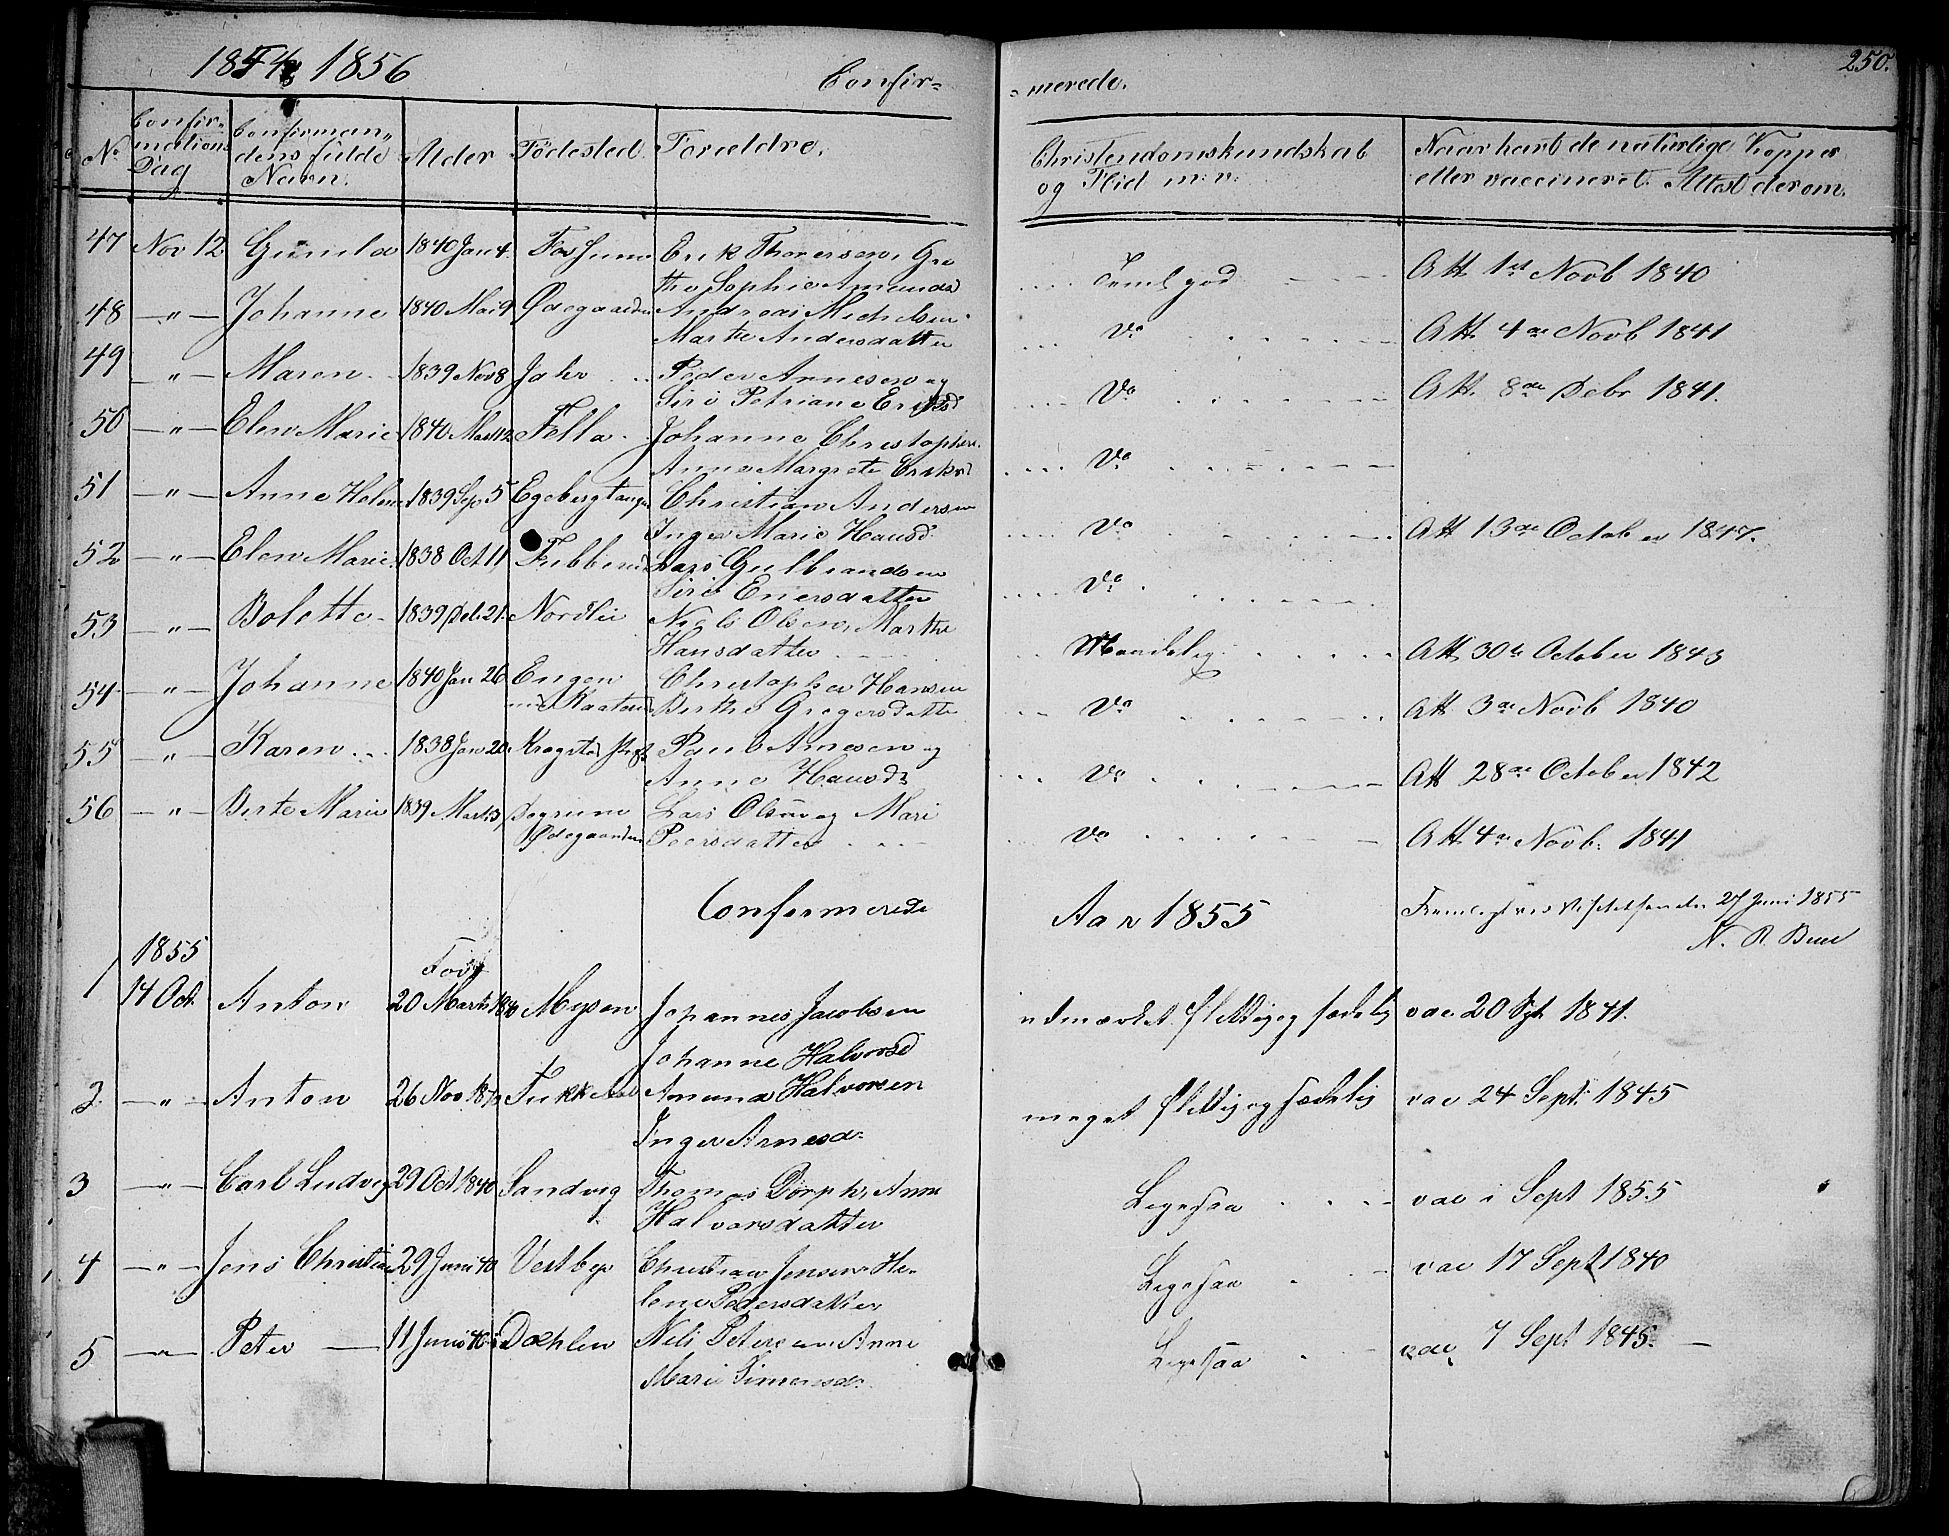 1854, 1856
Confir=
=merede.
250.
No
Confir=
mations
Dag
Confirman=
dens fulde
Navn.
Alder
Fødested
Forældre.
Christendomskundskab
og Flid m: v:
Naar havt de naturlige Kopper
eller vaccineret. Attest derom.
47 Nov 12 Gunild 1840 Jan 4. Fossum Erik Thoresen, Gre
the Sophie Amunds .... Teml. god - - - Att. 1st Novb 1840
48 -"- Johanne 1840 Mai 9 Ødegaarden Andreas Michelsen
Marthe Andersdatter ... Do . . . Att. 4de Novb 1841
49 -"- Maren 1839 Nov 8 Jahr .. Peder Arnesen og
Siri Petriane Eriksd .... Do . . . Att. 8de Debr 1841.
50 -"- Elen Marie 1840 Mart 12 Fella. Johanne Christophers.
Anne Margrete Eriksd .... Do . . .
51 -"- Anne Helene 1839 Sep 5 Egebergtangen Christian Andersen
Inger Marie Hansd. .... Do . . . Att 13de October 1847.
52 -"- Elen Marie 1838 Oct 11 Lars Gulbrandsen
Siri Einersdatter .... Do . . .
53 -"- Bolette 1839 Deb. 21. Nordlie Niels Olsen, Marthe
Hansdatter .. Maadelig . . . Att. 30te October 1843
54 -"- Johanne 1840 Jan 26 Engen
Christopher Hansen
Berthe Gregersdatter ... Do . . . Att 3de Novb 1840
55 -"- Karen ... 1838 Jan 20 Kragstad Paul Arnesen og
Anne Hansdr ... Do . . . Att 28de October 1842
56 -"- Berte Marie 1839 Mart 3
Ødegaarden
Lars Olsen og Mari
Peersdatter .... Do . . . Att 4de Novb. 1841
Confirmerede
Aar 1855
Fremlagt ved Visitatsen den 27 Juni 1855
1855
Født
1 14 Oct. Anton 20 Marts 1840 Mysen Johannes Jacobsen
Johanne Halvorsd udmærket flittig og sædelig vac 20 Sept 1841.
2 -"- Anton 26 Nov Amund Halvorsen
Inger Arnesdr. meget flittig og sædelig vac 24 Sept. 1845
3 -"- Carl Ludvig 29 Oct 1840 Sandvig Thomas Dorph, Anne
Halvorsdatter Ligesaa . . . vac i Sept 1855
4 -"- Jens Christian 29 Juni 40 Vestbye Christian Jensen He=
lene Pedersdatter Ligesaa . - vac 17 Sept 1840
5 -"- Peter - 11 Juni 40 Dæhlen Nils Petersen Anne
Marie Simensdr. Ligesaa . - vac 7 Sept 1845. -